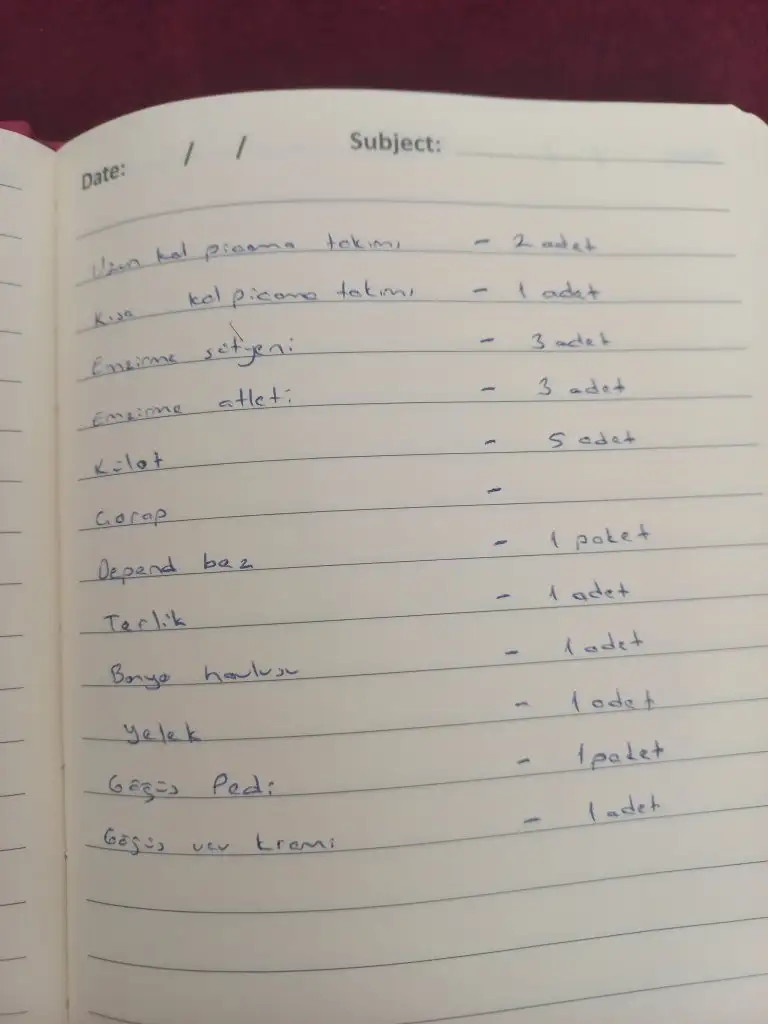 Date: / / Subject:
Uzun kol picama takımı - 2 adet
Kısa kol picama takımı - 1 adet
Emzirme sütyeni - 3 adet
Emzirme atleti - 3 adet
Külot - 5 adet
Çorap -
Depend bez - 1 paket
Terlik - 1 adet
Banyo havlusu - 1 adet
Yelek - 1 adet
Göğüs Pedi - 1 paket
Göğüs ucu kremi - 1 adet